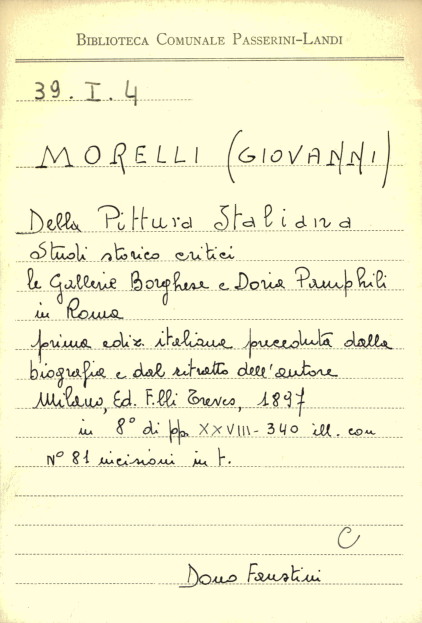 BIBLIOTECA COMUNALE PASSERINI-LANDI
39. I. 4
MORELLI (GIOVANNI)
Della Pittura Italiana
Studi storico critici
le Gallerie Borghese e Doria Pamphili
in Roma
prima ediz. italiana preceduta dalla
biografia e dal ritratto dell'autore
Milano, Ed. F.lli Treves, 1897
in 8° di pp. XXVIII-340 ill. con
N° 81 incisioni in t.
C
Dono Faustini